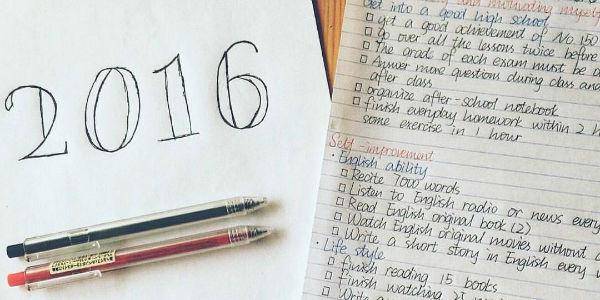 2016
and motivating myself
Get into a good high school
□ get a good achievement of No 150
□ Go over all the lessons twice before
□ The grade of each exam must be a
□ Answer more questions during class and
after class
□ organize after-school notebook
□ finish everyday homework within 2 h
some exercise in 1 hour
Self-improvement
• English ability
□ Recite 7000 words
□ Listen to English radio or news every
□ Read English original book (2)
□ Watch English original movies without
□ Write a short story in English every
• Life style
□ finish reading 15 books
□ Finish watching
□ Write a